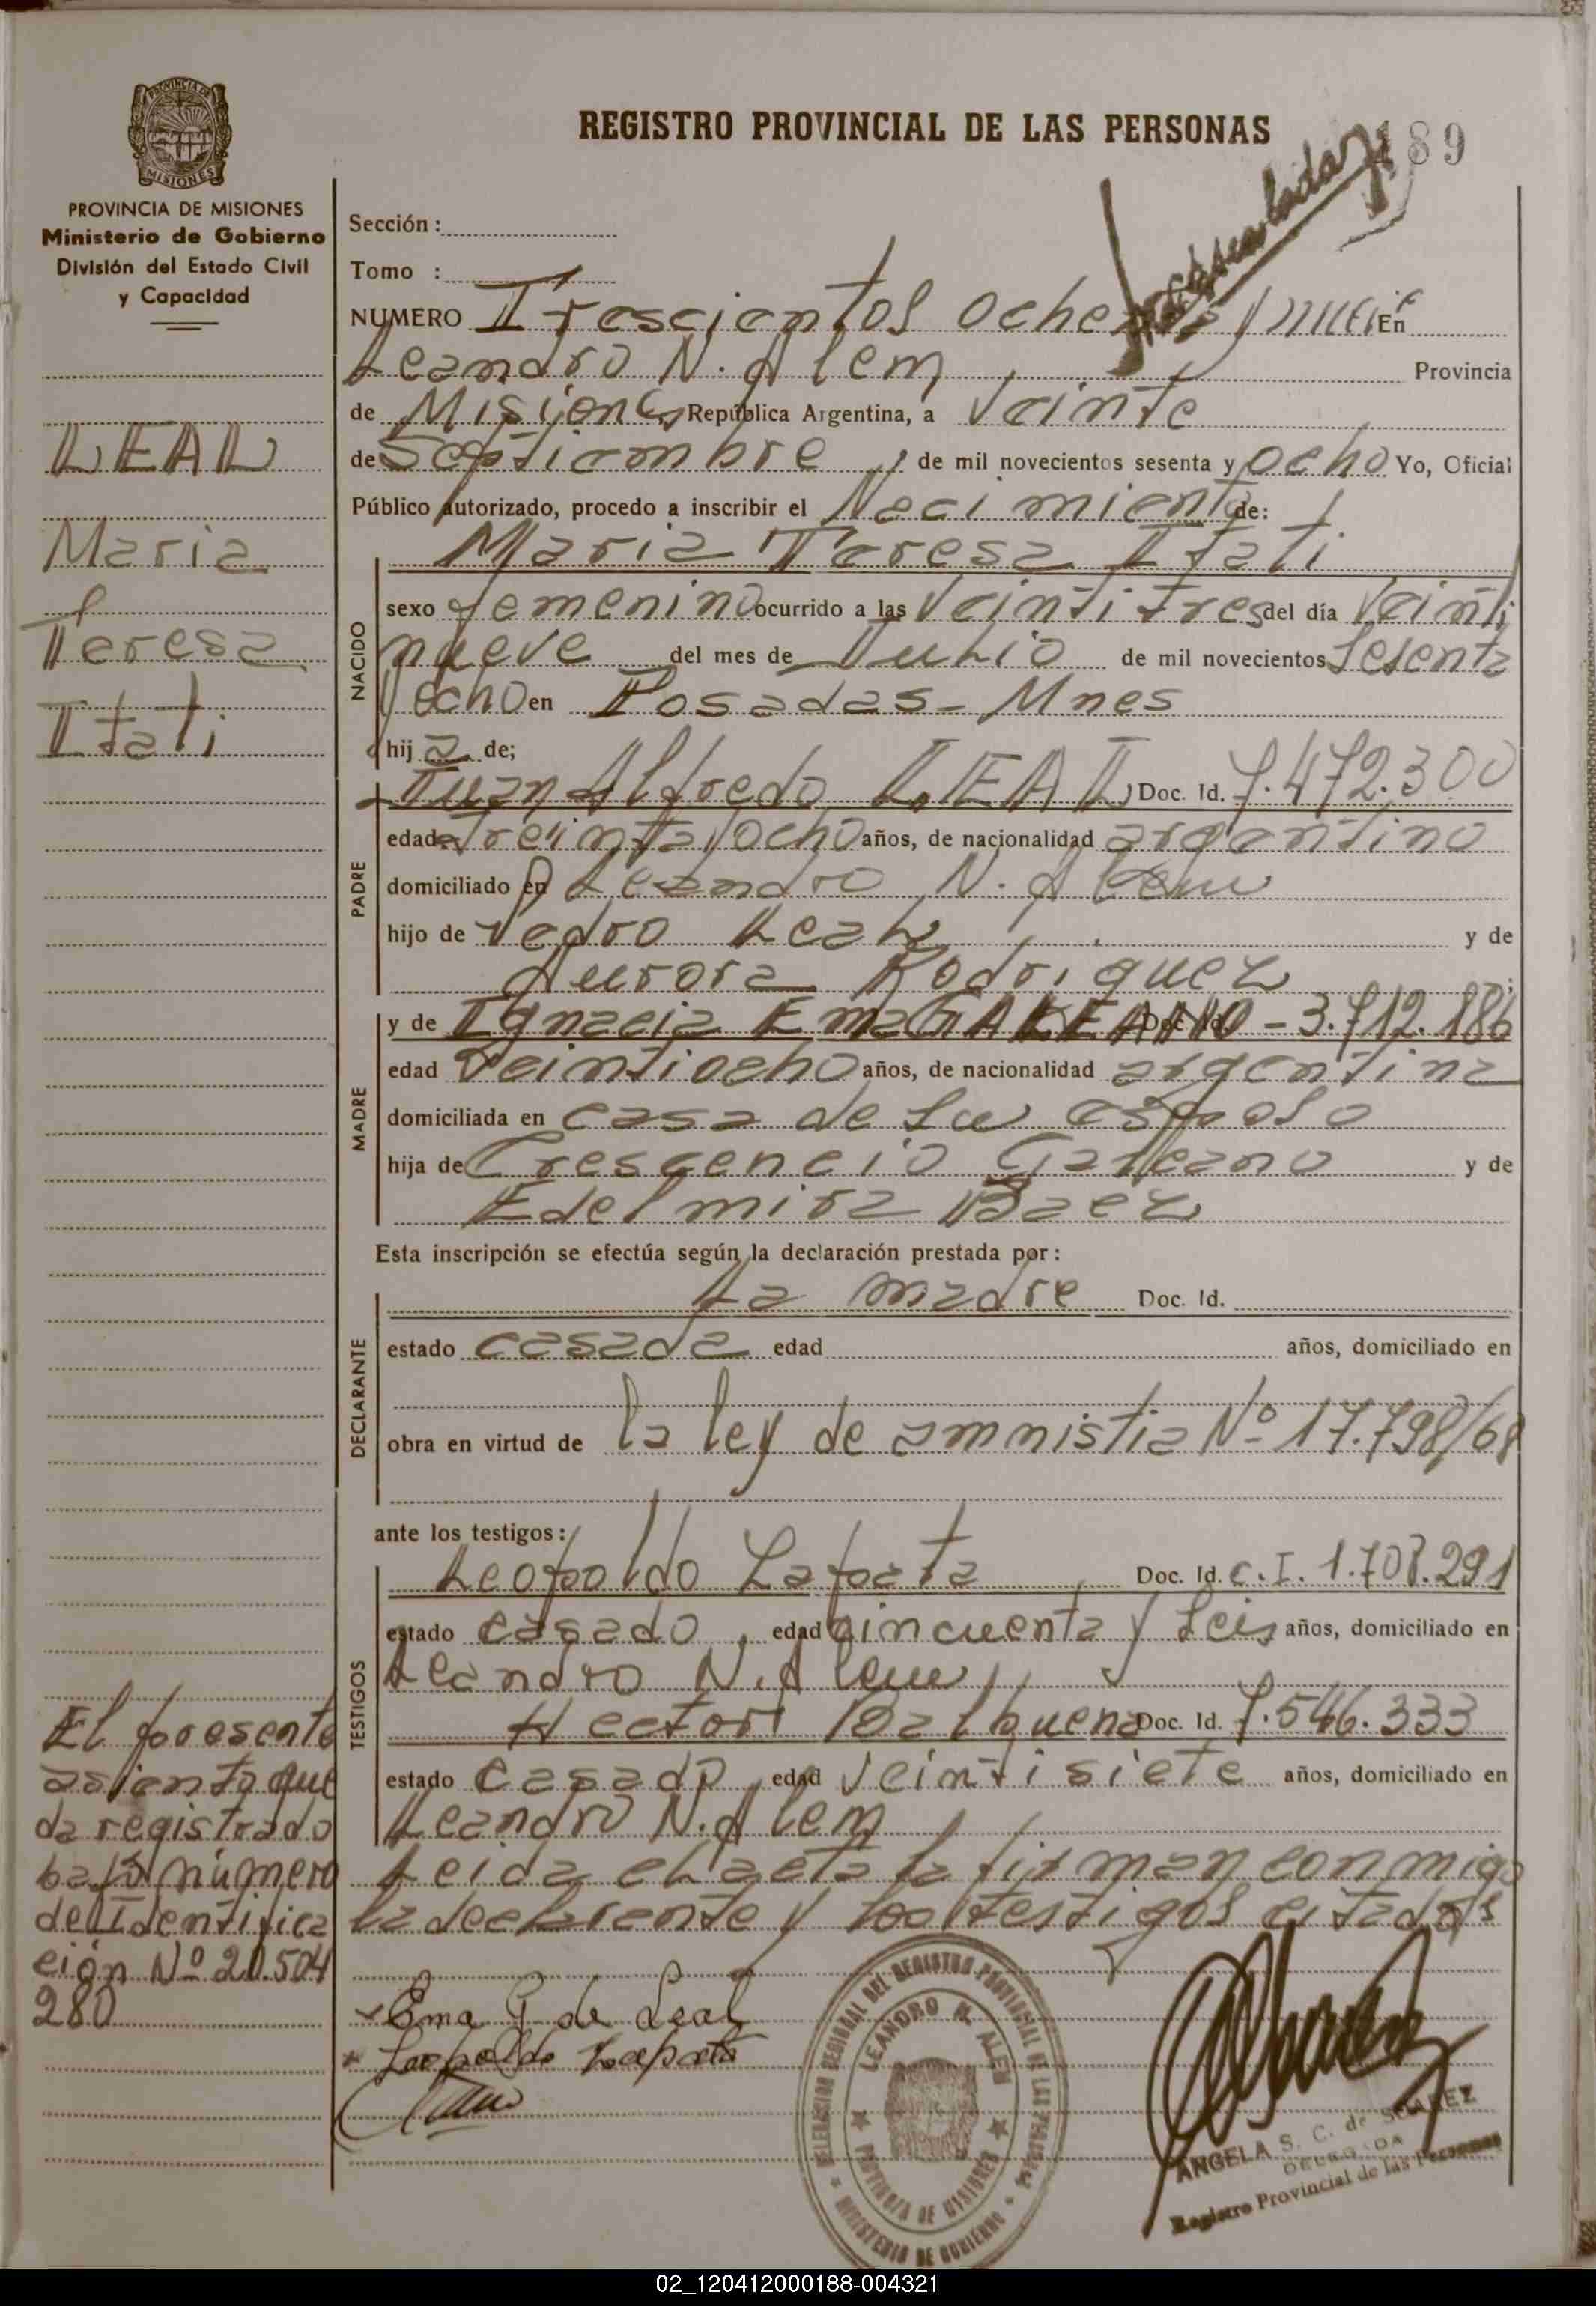 REGISTRO PROVINCIAL DE LAS PERSONAS
189
MISIONES
PROVINCIA DE MISIONES
Ministerio de Gobierno
División del Estado Civil
y Capacidad
LEAL
Maria
Teresa
Itati
El presente
asiento que
da registrado
bajo número
de Identifica
ción Nº 20.504
280
Sección :
Tomo :
NUMERO Trescientos ochenta y nueve En
Leandro N. Alem Provincia
de Misiones República Argentina, a Veinte
de Septiembre de mil novecientos sesenta y ocho Yo, Oficial
Público autorizado, procedo a inscribir el Nacimiento de:
Maria Teresa Itati
NACIDO
sexo femenino ocurrido a las Veintitres del día Veinti
nueve del mes de Junio de mil novecientos Sesenta
y ocho en Posadas - Mnes
hij a de;
PADRE
Juan Alfredo LEAL Doc. Id. 7.472.300
edad treinta y ocho años, de nacionalidad argentino
domiciliado en Leandro N. Alem
hijo de Pedro Leal y de
Aurora Rodriguez
MADRE
y de Ignacia Ema GALEANO Doc. Id. - 3.712.186
edad Veintiocho años, de nacionalidad argentina
domiciliada en casa de su esposo
hija de Crescencio Galeano y de
Edelmira Baez
Esta inscripción se efectúa según la declaración prestada por :
DECLARANTE
La madre Doc. Id.
estado casada edad años, domiciliado en
obra en virtud de la ley de amnistia Nº 17.798/68
ante los testigos :
TESTIGOS
Leopoldo Zapata Doc. Id. C.I. 1.708.291
estado casado, edad cincuenta y seis años, domiciliado en
Leandro N. Alem
Hector Balbuena Doc. Id. 7.546.333
estado casado, edad veintisiete años, domiciliado en
Leandro N. Alem
Leida el acta la firman conmigo
la declarante y los testigos citados
Ema G de Leal
Leopoldo Zapata
DELEGACION REGIONAL DEL REGISTRO PROVINCIAL DE LAS PERSONAS
LEANDRO N. ALEM
PROVINCIA DE MISIONES
MINISTERIO DE GOBIERNO
ANGELA S. C. de SUAREZ
DELEGADA
Registro Provincial de las Personas
02_120412000188-004321